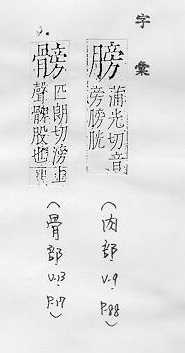 字彙
膀 蒲光切音旁膀胱
(肉部 V.9 P.88)
髈 匹朗切滂上聲髈股也
(骨部 V.13 P.17)